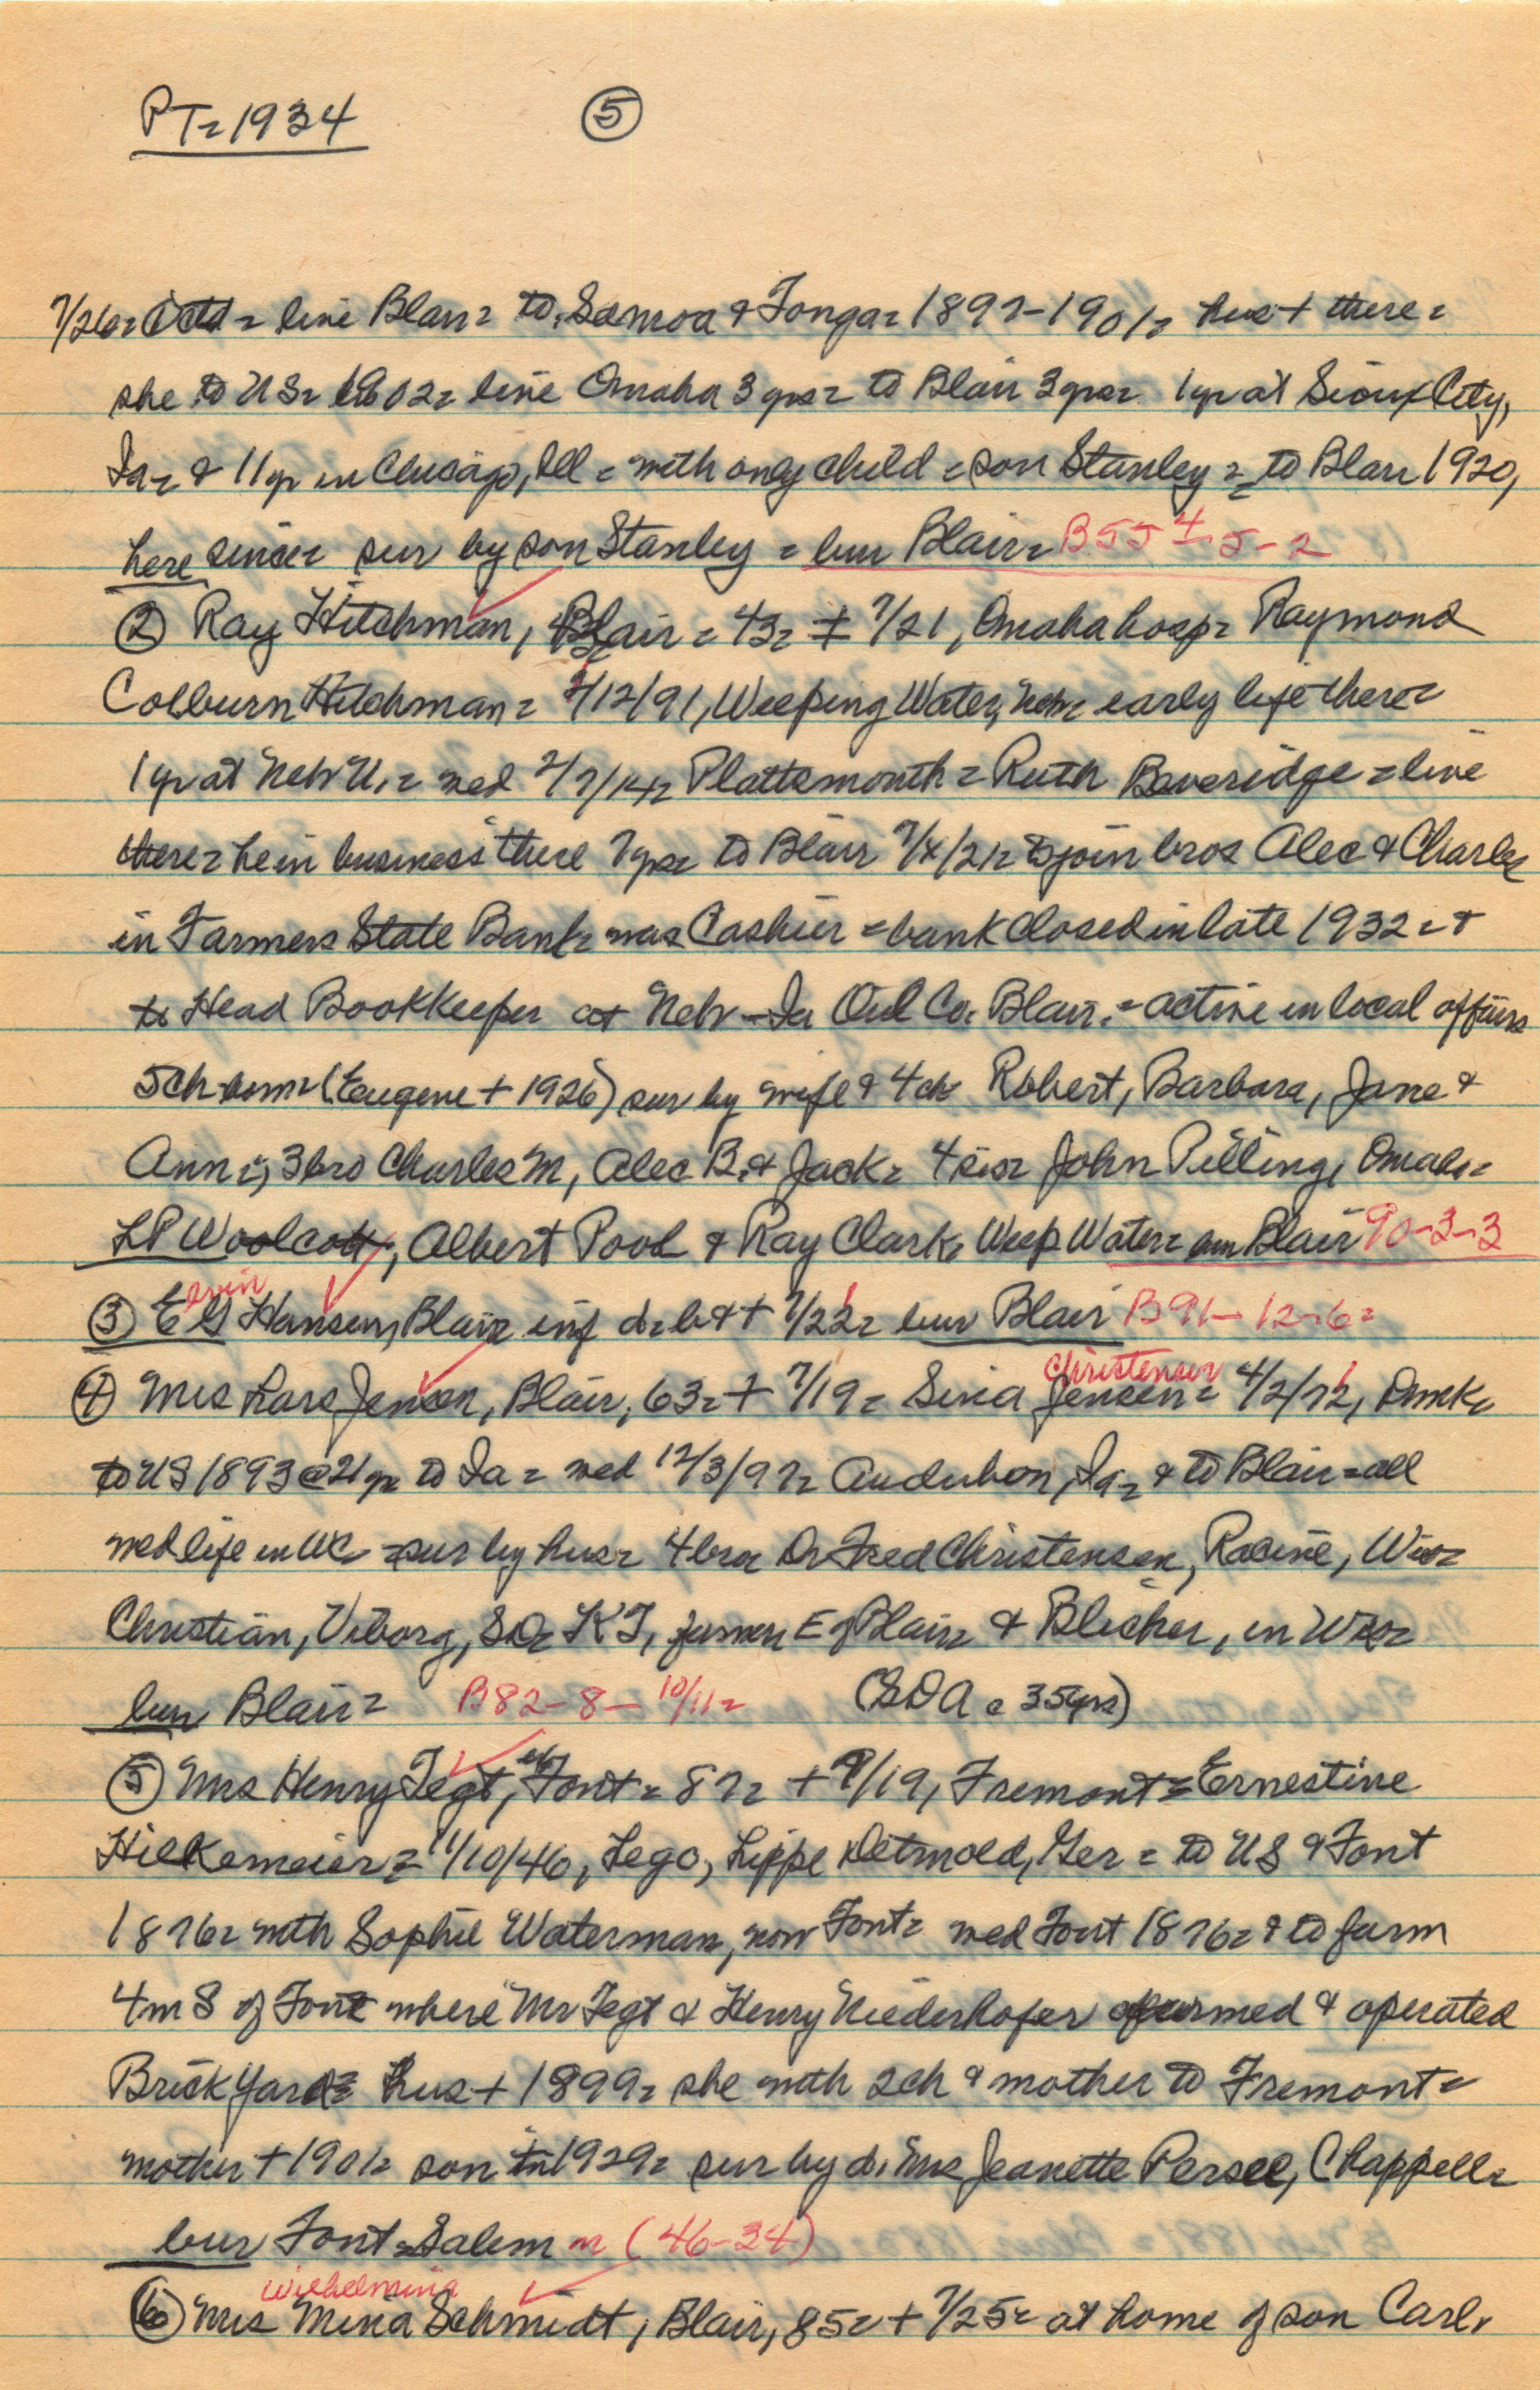 PT= 1934 ⑤
7/26= = live Blair= to Samoa & Tonga= 1897-1901= hus + there=
she to US= 1902= live Omaha 3 yrs= to Blair 3 yrs= 1 yr at Sioux City,
Ia= & 11 yr in Chicago, Ill = with only child = son Stanley = to Blair 1920,
here since= sur by son Stanley = bur Blair= B55 4-5-2
② Ray Hitchman, Blair = 43= + 7/21, Omaha hosp= Raymond
Colburn Hitchman = 2/12/91, Weeping Water, Neb= early life there=
1 yr at Neb U. = wed 2/7/14= Plattsmouth = Ruth Beveridge = live
there= he in business there 7 yrs= to Blair 7/4/21= to join bros Alec & Charles
in Farmers State Bank= was Cashier = bank closed in late 1932 = &
to Head Bookkeeper at Neb-Ia Oil Co. Blair. = active in local affairs
5 ch born= (Eugene + 1926) sur by wife & 4 ch Robert, Barbara, Jane &
Ann =, 3 bro Charles M, Alec B. & Jack= 4 sis= John Pilling, Omaha=
LP Woolcott, Albert Pool & Ray Clark, Weep Water= bur Blair 90-3-3
Ervin
③ E G Hansen, Blair= inf d= b & + 7/22= bur Blair B91-12-6=
Christensen
④ Mrs Lars Jensen, Blair, 63= + 7/19= Sina Jensen= 4/2/72, Dmk,
to US 1893 @ 21 yr to Ia = wed 12/3/97= Audubon, Ia= & to Blair= all
wed life in WC = sur by hus= 4 bro= Dr Fred Christensen, Racine, Wis=
Christian, Viborg, SD= K T, farmer E of Blair= & Blicher, in Wis=
bur Blair= B82-8-10/11= (SDA = 35 yrs)
⑤ Mrs Henry Tegt, Font= 87= + 7/19, Fremont= Ernestine
Hilkemeier= 11/10/46, Lego, Lippe Detmold, Ger = to US & Font
1876= with Sophie Waterman, now Font= wed Font 1876= & to farm
4 m S of Font where Mr Tegt & Henry Niederhofer farmed & operated
Brick Yard= hus + 1899= she with 2 ch & mother to Fremont=
mother + 1901= son in 1929= sur by d. Mrs Jeanette Persel, Chappell=
bur Font= Salem = (46-34)
Wilhelmina
⑥ Mrs Mina Schmidt, Blair, 85= + 7/25= at home of son Carl,